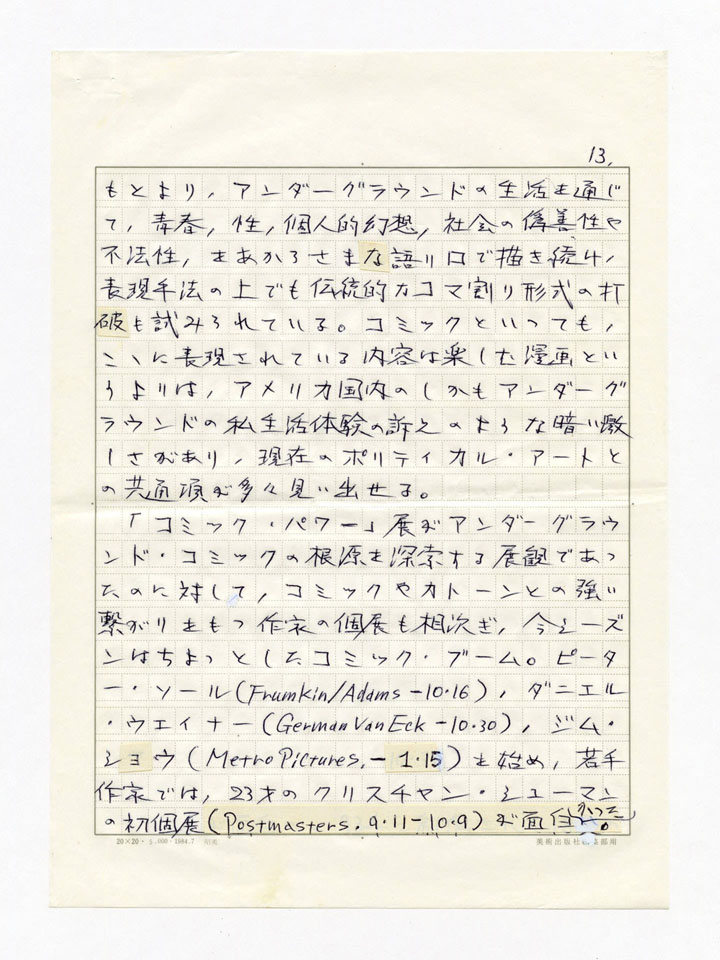 13.
もとより，アンダーグラウンドの生活を通じ
て，青春，性，個人的幻想，社会の偽善性や
不法性，をあからさまな語り口で描き続け，
表現手法の上でも伝統的なコマ割り形式の打
破も試みられている。コミックといっても，
ここに表現されている内容は楽しむ漫画とい
うよりは，アメリカ国内のしかもアンダーグ
ラウンドの私生活体験の訴えのような暗い激
しさがあり，現在のポリティカル・アートと
の共通項が多々見い出せる。
「コミック・パワー」展がアンダーグラウ
ンド・コミックの根源を深索する展観であっ
たのに対して，コミックやカトーンとの強い
繋がりをもつ作家の個展も相次ぎ，今シーズ
ンはちょっとしたコミック・ブーム。ピータ
ー・ソール(Frumkin/Adams－10.16)，ダニエル
・ウェイナー(German Van Eck－10.30)，ジム・
ショウ(Metro Pictures，－1.15)を始め，若手
作家では，23才のクリスチャン・シューマン
の初個展(Postmasters．9.11－10.9)が面白かった。
20×20・ 5,000・1984.7
美術出版社 部用